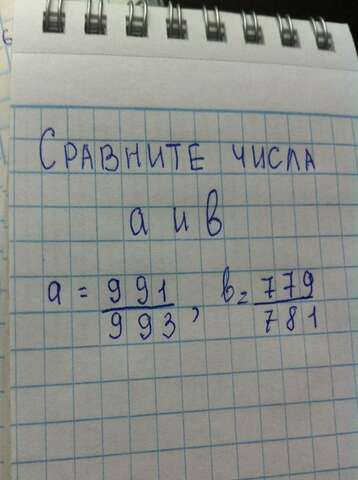 Сравните числа
а и в
a = 991/993, b = 779/781